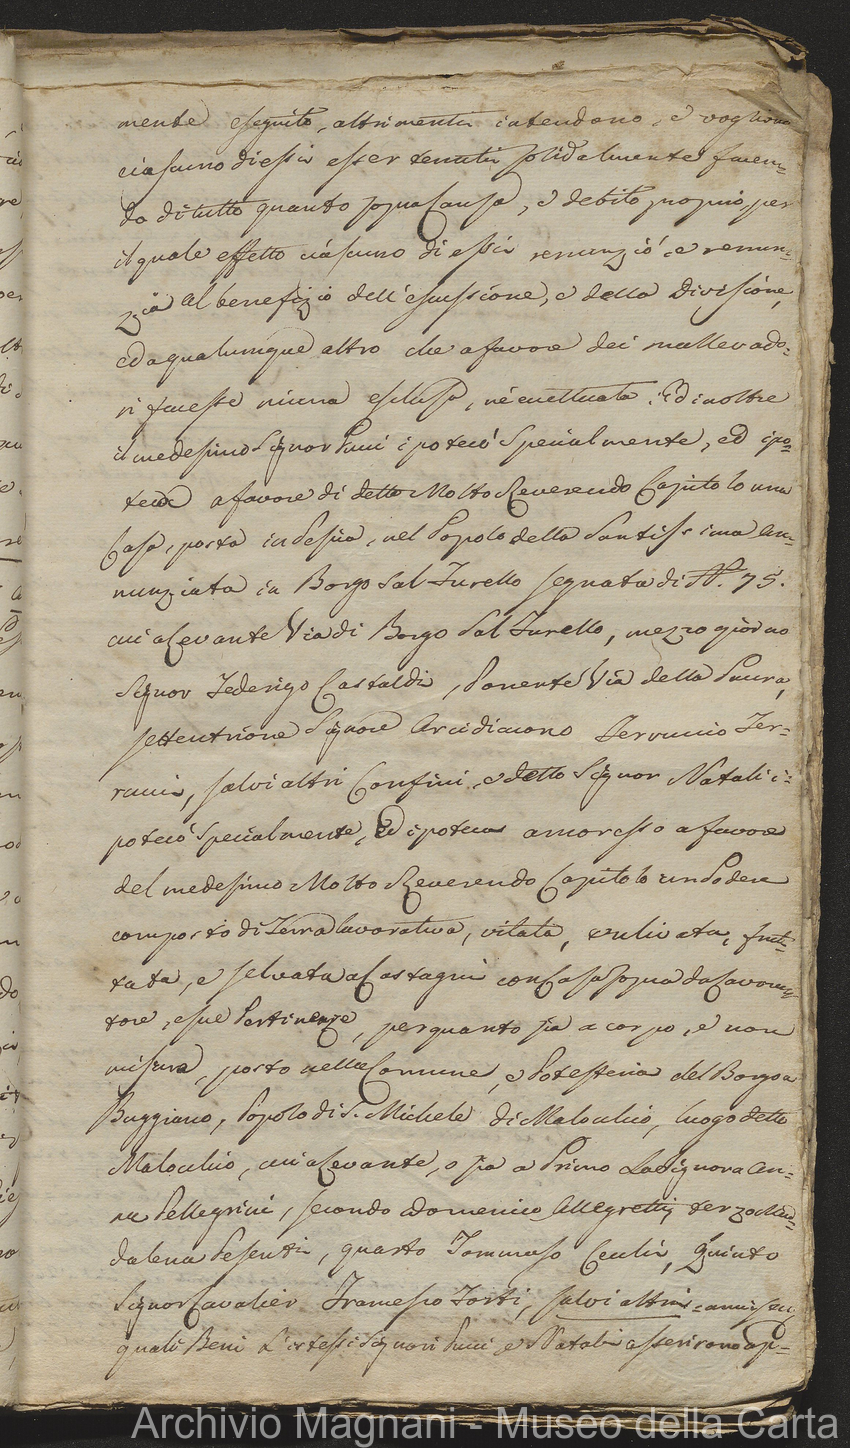 mente eseguito, altrimenti intendono, e vogliono
ciascuno di essi esser tenuti solidalmente facen=
do di tutto quanto sopra Causa, e debito proprio, per
il quale effetto ciascuno di essi renunziò, e renun=
zia al benefizio dell'escussione, e della Divisione,
ed a qualunque altro che a favore dei mallevado=
ri facesse niuna esclusa, nè eccettuata. Ed inoltre
il medesimo Signor Pucci ipotecò Specialmente, ed ipo=
teca a favore di detto Molto Reverendo Capitolo una
Casa, posta in Pescia, nel Popolo della Santissima An=
nunziata in Borgo Sal Turello segnata di N. 75.
cui a Levante Via di Borgo Sal Turello, mezzo giorno
Signor Federigo Castaldi, Ponente Via della
settentrione Signore Arcidiacono Fer=
salvi altri Confini, e detto Signor Natali i=
potecò Specialmente, Ed ipoteca amoresso a favore
del medesimo Molto Reverendo Capitolo un Podere
composto di Terra lavorativa, vitata, ulivata, frut=
tata, e selvata a Castagni con Casa sopra da Lavora=
tore, e sue Pertinenze, per quanto sia a corpo, e non
misura, posto nella Comune, e Potesteria del Borgo a
Buggiano, Popolo di S. Michele di Malocchio, luogo detto
Malocchio, cui a Levante, o sia a Primo La Signora An=
na Pellegrini, secondo Domenico Allegretti, terzo Mad=
dalena Pesenti, quarto Tommaso Cecchi, Quinto
Signor Cavalier Francesco Forti, salvi altri =
quali Beni L'istessi Signori Pucci e Natali asserirono ap=
Archivio Magnani - Museo della Carta